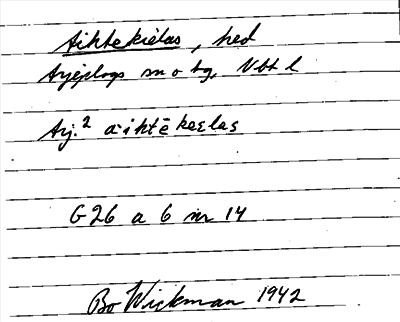 Aiktekielas, hed
Arjeplogs sn o tg, Vbt l
Arj.² a·iktēkeɛlas
G 26 a 6 nr 14
Bo Wickman 1942